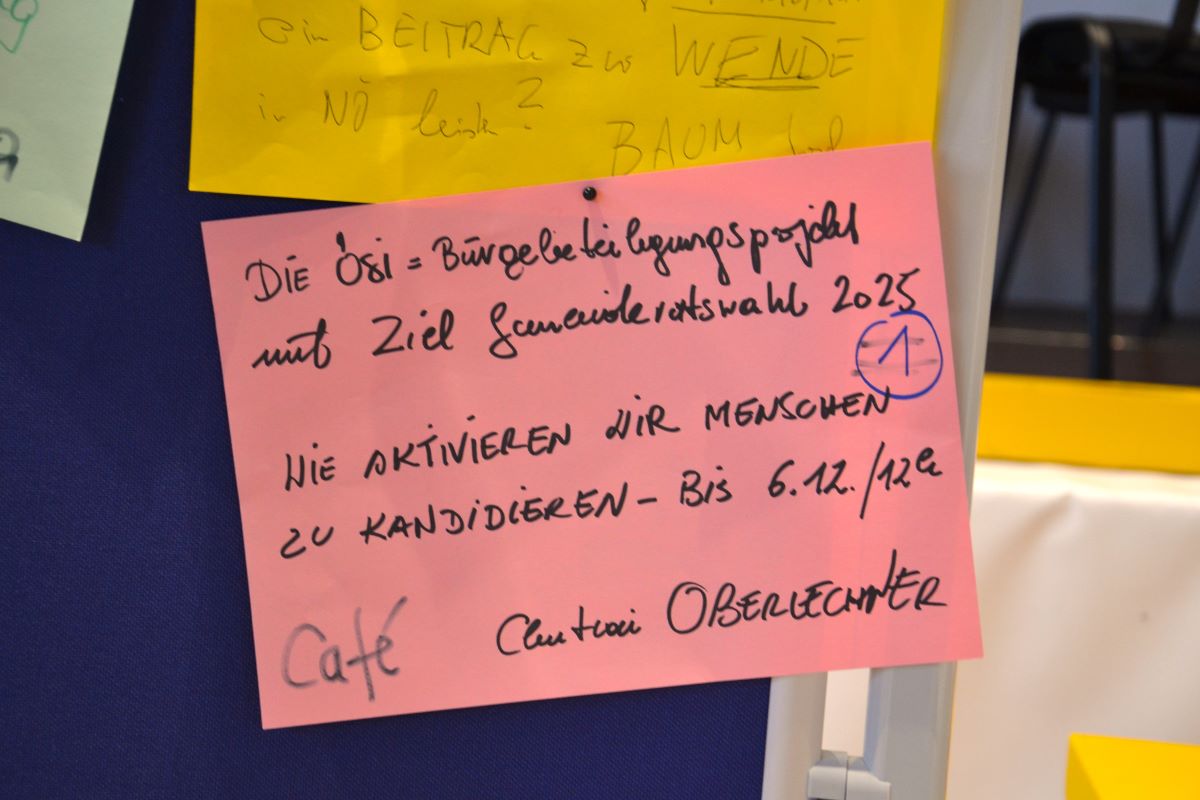 ein BEITRAG zur WENDE
in NÖ leisten?
BAUM und
DIE Ösi = Bürgebeteiligungsprojekt
mit Ziel Gemeinderatswahl 2025
1
WIE AKTIVIEREN WIR MENSCHEN
ZU KANDIDIEREN - BIS 6.12./12h
Café OBERLECHNER